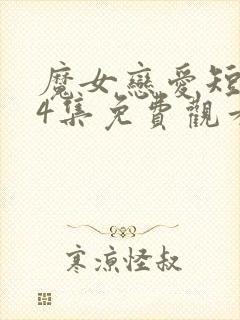 魔女戀愛短
4集免費觀看
寒涼怪叔